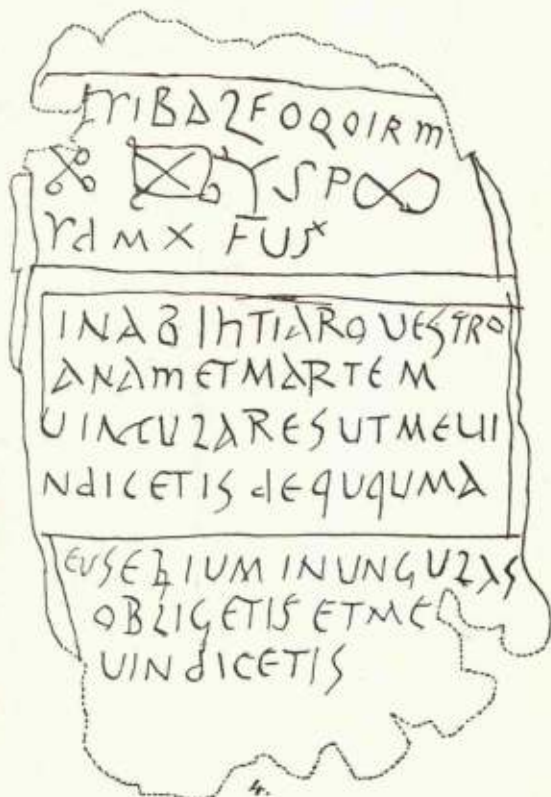 INABIhTIARO UESTRO
ANAM ET MARTEM
UINCULARES UT ME UI
NdICETIS dE QUQUMA
EUSEBIUM IN UNGULAS
OBLIGETIS ET ME
UINdICETIS